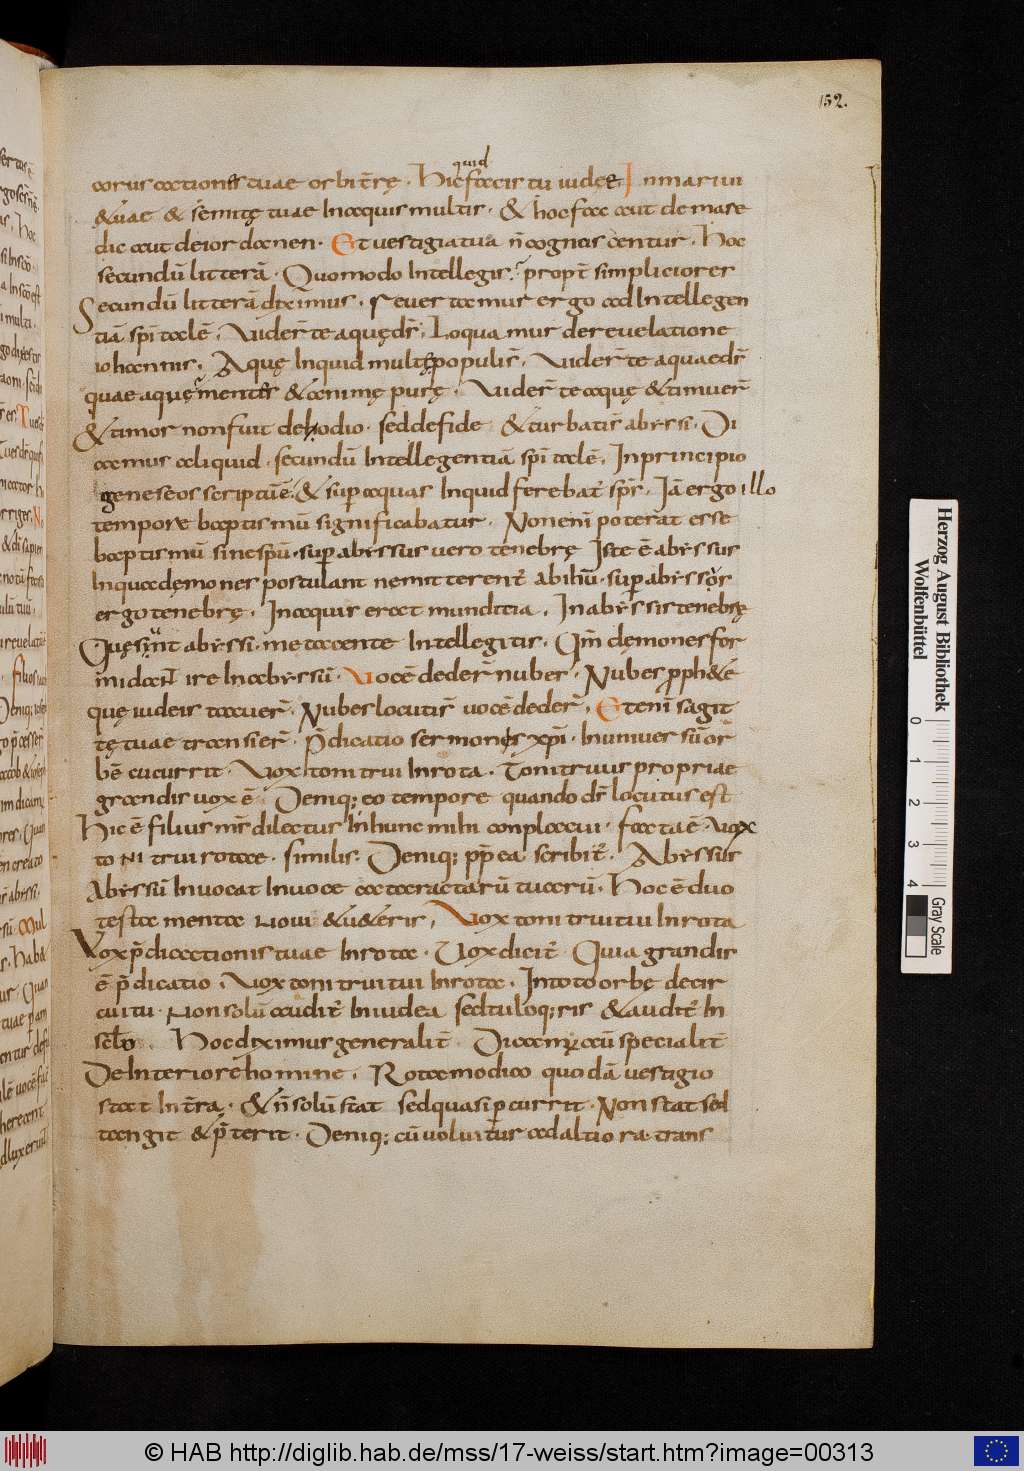 152.
quid
corus cactioneſ tuae orbi t̄re̜ . Hic facis tu iude̜e In mari ui
& uae & semite̜ tuae In aquis multis . & hoc fac aut de mare
dic aut de iordanen . Et uestigia tua n̄ cognoscentur . Hoc
secundū litterā . Quomodo Intellegis . propt̄ simpliciores
Secundū litterā diximus . Reuertamur ergo ad Intellegen
tiā spi talē . Uider̄ te aque̜ d̄s . Loquamur de reuelatione
iohannis . Aque̜ Inquid multe̜ populis . Uider̄ te aquae d̄s
quae aque̜ mentes & anime̜ pure̜ . Uider̄ te aque̜ & timuer̄
& timor non fuit de hodio . sed de fide & turbati s̄ abyssi . Di
camus aliquid . secundū Intellegentiā spi talē . In principio
geneseos scriptū ē . & sup aquas Inquid ferebat̄ sps̄ . Iā ergo illo
tempore baptismū significabatur . Non eni poterat esse
baptismū sine spū . sup abyssus uero tenebre̜ Iste ē abyssus
Inqua de̜mones postulant ne mitterent̄ abihū . sup abyssos
ergo tenebre̜ . In aquis erat munditia . In abyssis tenebre̜
Que̜ sunt abyssi . me tacente Intellegitis . Qm̄ de̜mones for
midant ire In abyssū . Vocē deder̄ nubes . Nubes pph&e̜
que̜ iudeis tacuer̄ . Nubes locuti s̄ uocē deder̄ . Eteni sagit
te̜ tuae transier̄ . P̄dicatio sermones xp̄i . In uniuersū or
bē cucurrit . Vox tonitrui In rota . Tonitruus propriae
grandis uox ē Deniq; eo tempore quando d̄s locutus est
Hic ē filius m̄s dilectus In hunc mihi conplacui . facta ē uox
to ni trui rotae . similis . Deniq; pp̄ ea scribit̄ . Abyssus
Abyssū Inuocat In uoce cactaractarū tuarū . Hoc ē duo
testamenta noui & u&eris . Vox tonitrui tui In rota
Vox p̄dicactionis tuae In rota . Vox dicit̄ Quia grandis
ē p̄dicatio . Vox tonitrui tui In rota . In toto orbe̜ decir
cuitu . Non solū audit̄ In iudea sed tuloq;ris & audit̄ In
sclo . Hoc diximus generalit̄ Dicamus aū specialit̄
De Interiore homine . Rota modica quodā uestigio
stat In t̄ra . & n̄ solū stat sed quasi p currit . Non stat sed
tangit & p̄terit . Deniq; cū uoluitur ad altiora . trans
Herzog August Bibliothek
Wolfenbüttel
0 1 2 3 4
Gray Scale
© HAB http://diglib.hab.de/mss/17-weiss/start.htm?image=00313